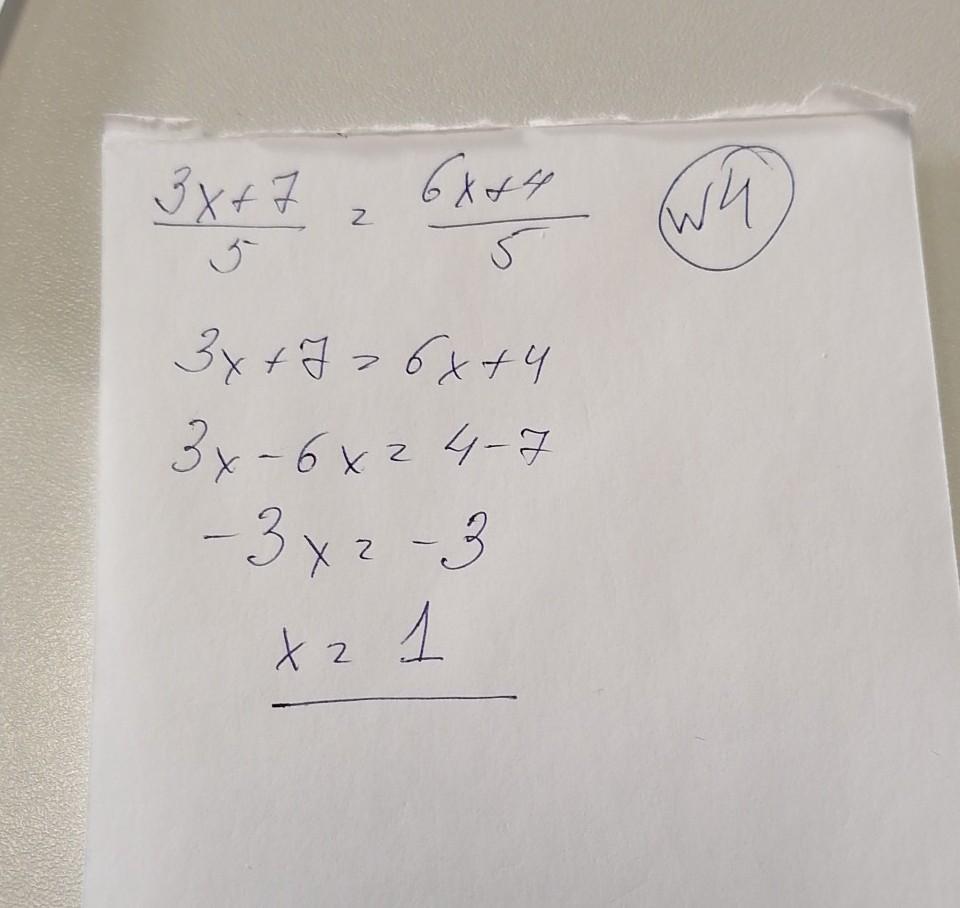 3x+7 = 6x+4 W4
5 5
3x+7 = 6x+4
3x-6x = 4-7
-3x = -3
x = 1